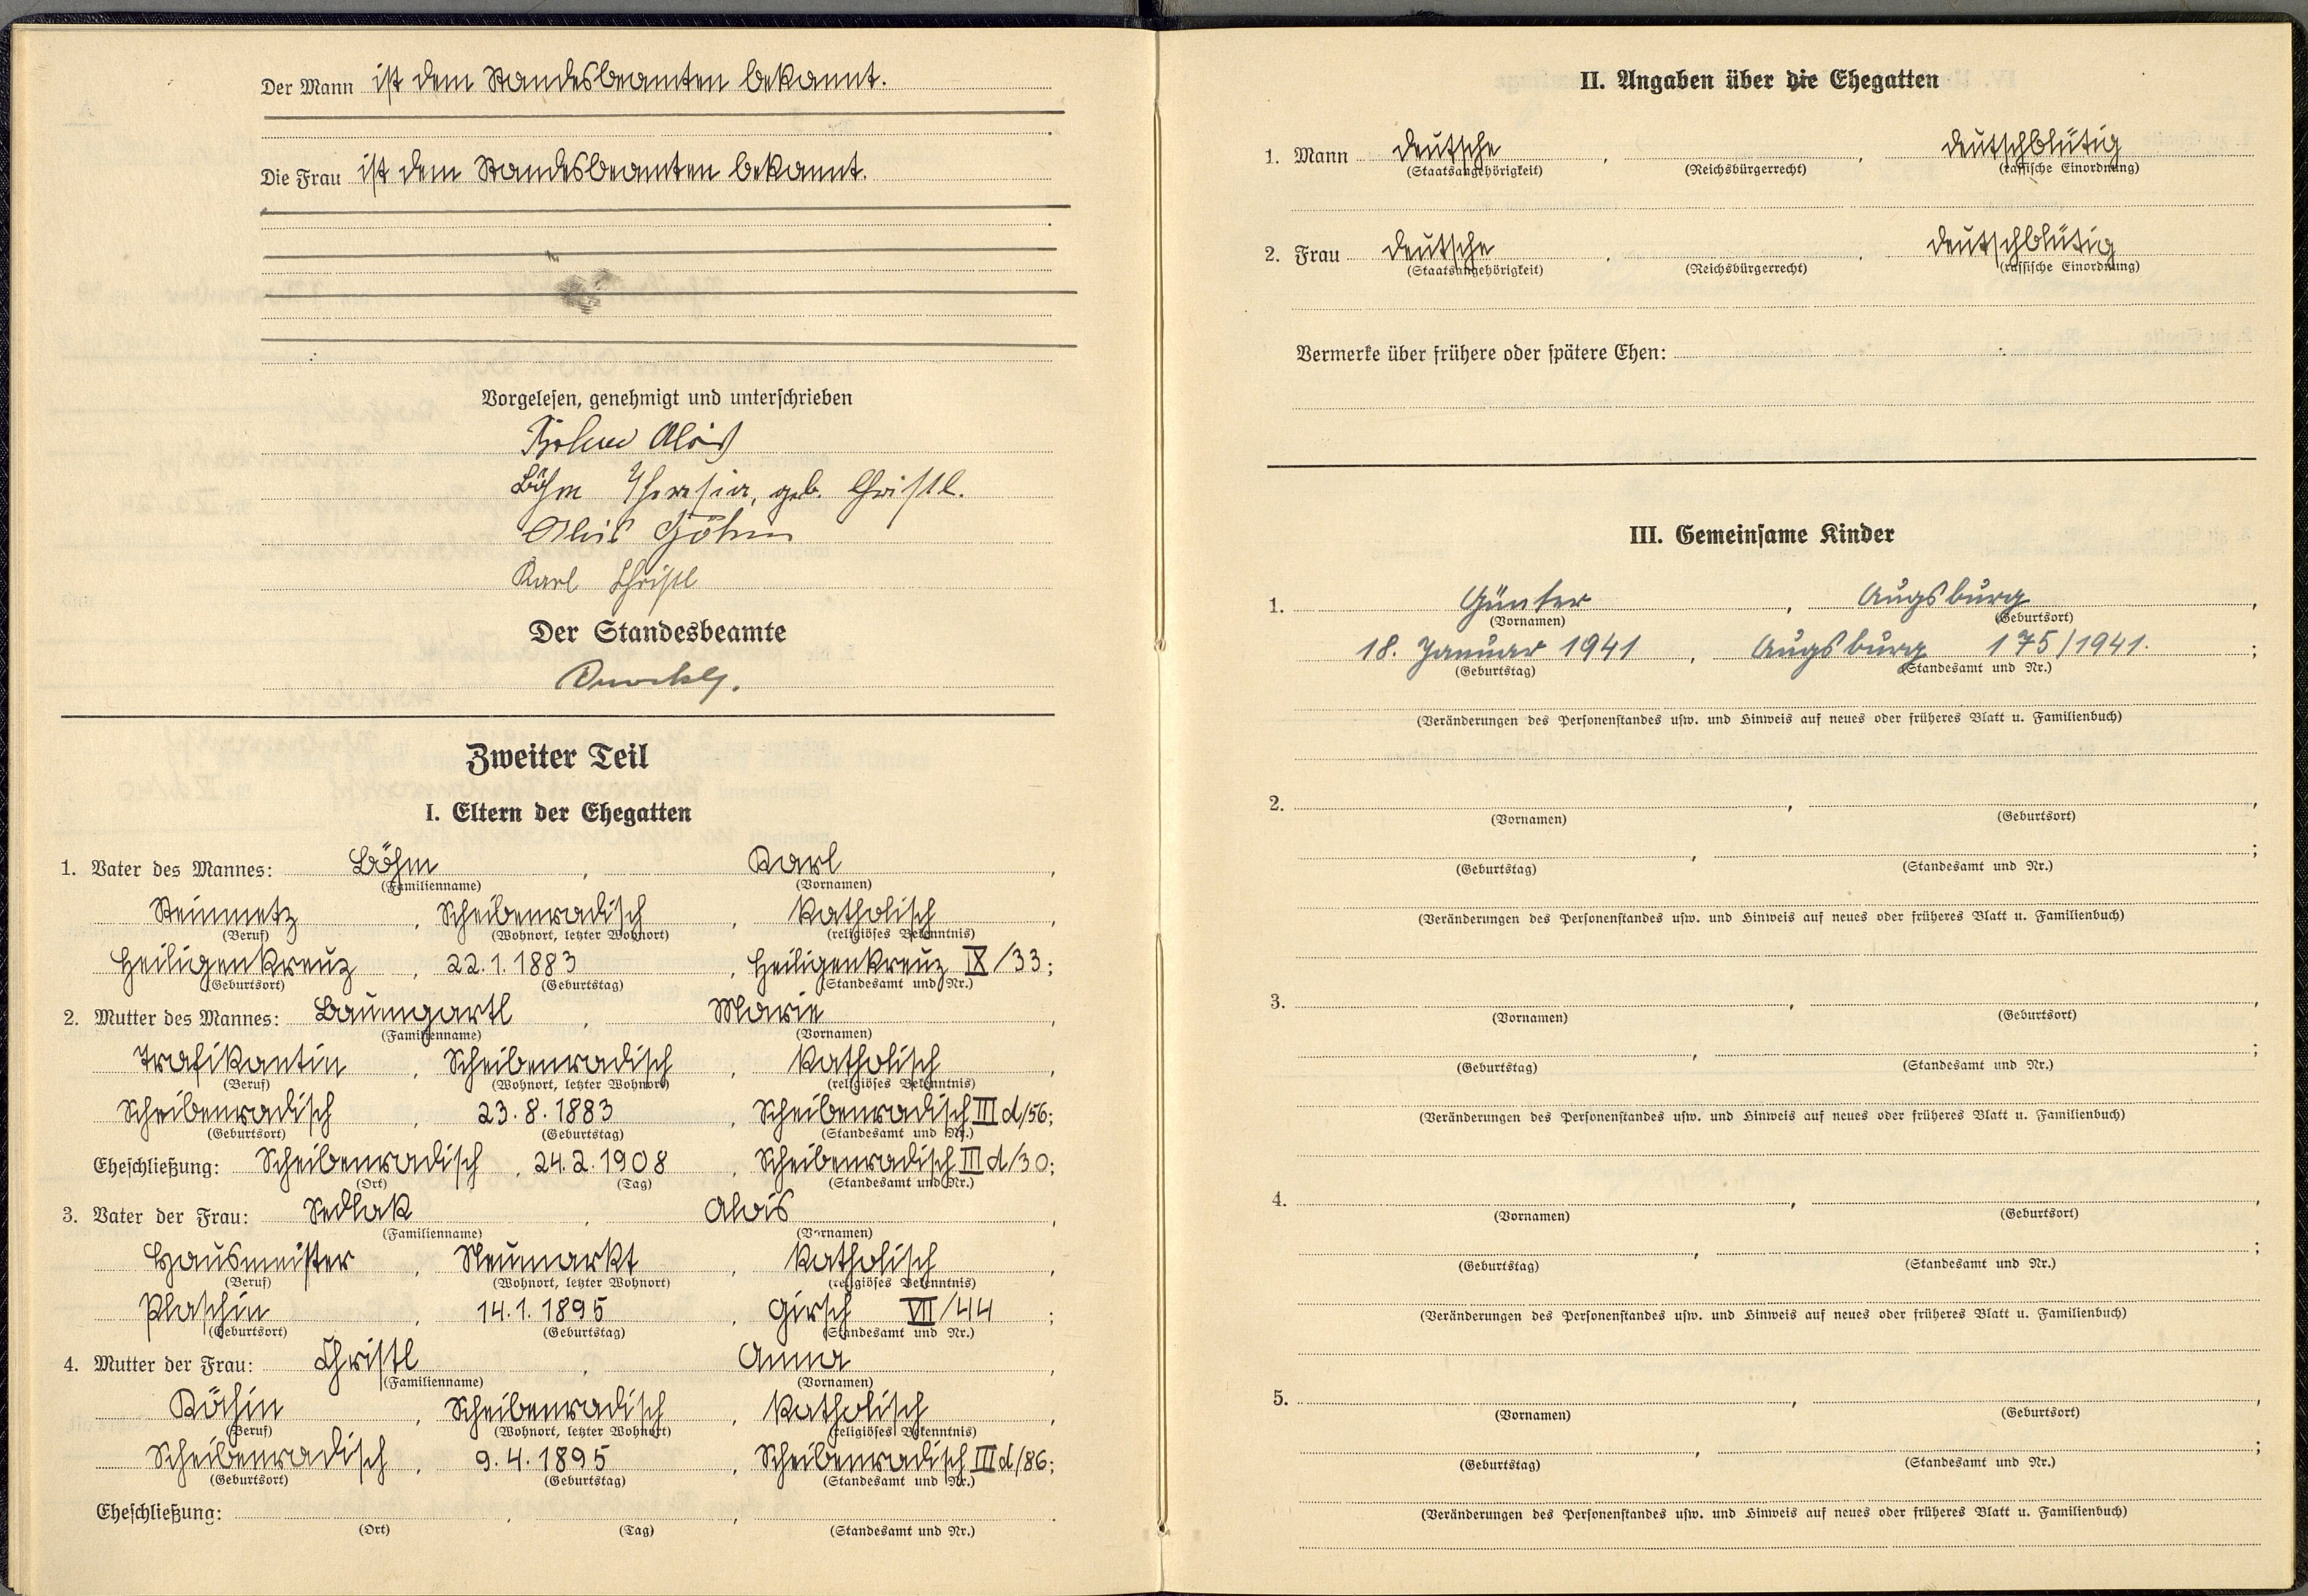 Der Mann ist dem Standesbeamten bekannt.
Die Frau ist dem Standesbeamten bekannt.
Vorgelesen, genehmigt und unterschrieben
Alois
Böhm Theresia, geb. Christl.
Alois Böhm
Karl Christl
Der Standesbeamte
Zweiter Teil
I. Eltern der Ehegatten
1. Vater des Mannes: Böhm, Karl,
(Familienname) (Vornamen)
Steinmetz, Scheibenradisch, katholisch,
(Beruf) (Wohnort, letzter Wohnort) (religiöses Bekenntnis)
Heiligenkreuz, 22.1.1883, Heiligenkreuz IX/33;
(Geburtsort) (Geburtstag) (Standesamt und Nr.)
2. Mutter des Mannes: Baumgartl, Marie,
(Familienname) (Vornamen)
Trafikantin, Scheibenradisch, katholisch,
(Beruf) (Wohnort, letzter Wohnort) (religiöses Bekenntnis)
Scheibenradisch, 23.8.1883, Scheibenradisch III d/56;
(Geburtsort) (Geburtstag) (Standesamt und Nr.)
Eheschließung: Scheibenradisch, 24.2.1908, Scheibenradisch III d/30;
(Ort) (Tag) (Standesamt und Nr.)
3. Vater der Frau: Sedlak, Alois,
(Familienname) (Vornamen)
Hausmeister, Neumarkt, katholisch,
(Beruf) (Wohnort, letzter Wohnort) (religiöses Bekenntnis)
Plaschin, 14.1.1895, Girsch VII/44;
(Geburtsort) (Geburtstag) (Standesamt und Nr.)
4. Mutter der Frau: Christl, Anna,
(Familienname) (Vornamen)
Köchin, Scheibenradisch, katholisch,
(Beruf) (Wohnort, letzter Wohnort) (religiöses Bekenntnis)
Scheibenradisch, 9.4.1895, Scheibenradisch III d/86;
(Geburtsort) (Geburtstag) (Standesamt und Nr.)
Eheschließung: , , .
(Ort) (Tag) (Standesamt und Nr.)
II. Angaben über die Ehegatten
1. Mann deutsche, , deutschblütig
(Staatsangehörigkeit) (Reichsbürgerrecht) (rassische Einordnung)
2. Frau deutsche, , deutschblütig
(Staatsangehörigkeit) (Reichsbürgerrecht) (rassische Einordnung)
Vermerke über frühere oder spätere Ehen:
III. Gemeinsame Kinder
1. Günter, Augsburg,
(Vornamen) (Geburtsort)
18. Januar 1941, Augsburg 175/1941.;
(Geburtstag) (Standesamt und Nr.)
(Veränderungen des Personenstandes usw. und Hinweis auf neues oder früheres Blatt u. Familienbuch)
2. , ,
(Vornamen) (Geburtsort)
, ;
(Geburtstag) (Standesamt und Nr.)
(Veränderungen des Personenstandes usw. und Hinweis auf neues oder früheres Blatt u. Familienbuch)
3. , ,
(Vornamen) (Geburtsort)
, ;
(Geburtstag) (Standesamt und Nr.)
(Veränderungen des Personenstandes usw. und Hinweis auf neues oder früheres Blatt u. Familienbuch)
4. , ,
(Vornamen) (Geburtsort)
, ;
(Geburtstag) (Standesamt und Nr.)
(Veränderungen des Personenstandes usw. und Hinweis auf neues oder früheres Blatt u. Familienbuch)
5. , ,
(Vornamen) (Geburtsort)
, ;
(Geburtstag) (Standesamt und Nr.)
(Veränderungen des Personenstandes usw. und Hinweis auf neues oder früheres Blatt u. Familienbuch)